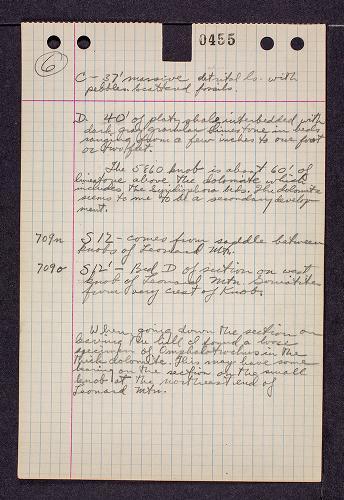 0455
6
C - 37' massive detrital ls. with
pebbles scattered fossils.
D. 40' of platy shale interbedded with
dark gray granular limestone in beds
ranging from a few inches to one foot
or two feet.
The 5860 knob is about 60' of
limestone above the dolomite which
includes the Scyphiophora beds. The dolomite
seems to me to be a secondary develop-
ment.
709n S12 - comes from saddle between
knobs of Leonard Mtn.
709o S12' - Bed D of section on west
knob of Leonard Mtn. Goniatites
from very crest of Knob.
When going down the section on
leaving the hill I found a loose
specimen of Omphalotrochus in the
thick dolomite. This may have some
bearing on the section on the small
knob at the northeast end of
Leonard Mtn.